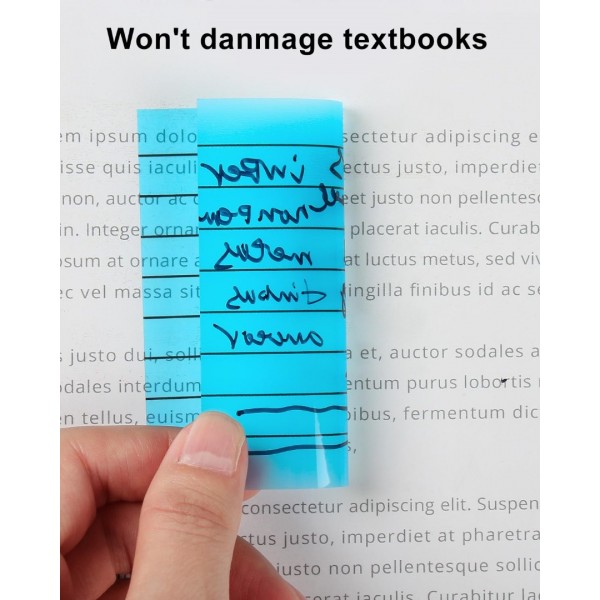 Won't danmage textbooks
em ipsum dolo sectetur adipiscing e
isse quis iaculi ectus justo, imperdiet
non, auctor ac eet justo non pellentesq
in. Integer ornar placerat iaculis. Curab
osum at ornare at luctus metus, sed viv
ec vel massa sit ingilla finibus id ac se
s justo dui, solli a et, auctor sodales a
dales interdum entum purus lobortis
en tellus, euism ibus, fermentum dict
s,
consectetur adipiscing elit. Suspen
tus justo, imperdiet at pharetra
justo non pellentesque sollic
erat iaculis. Curabitur la